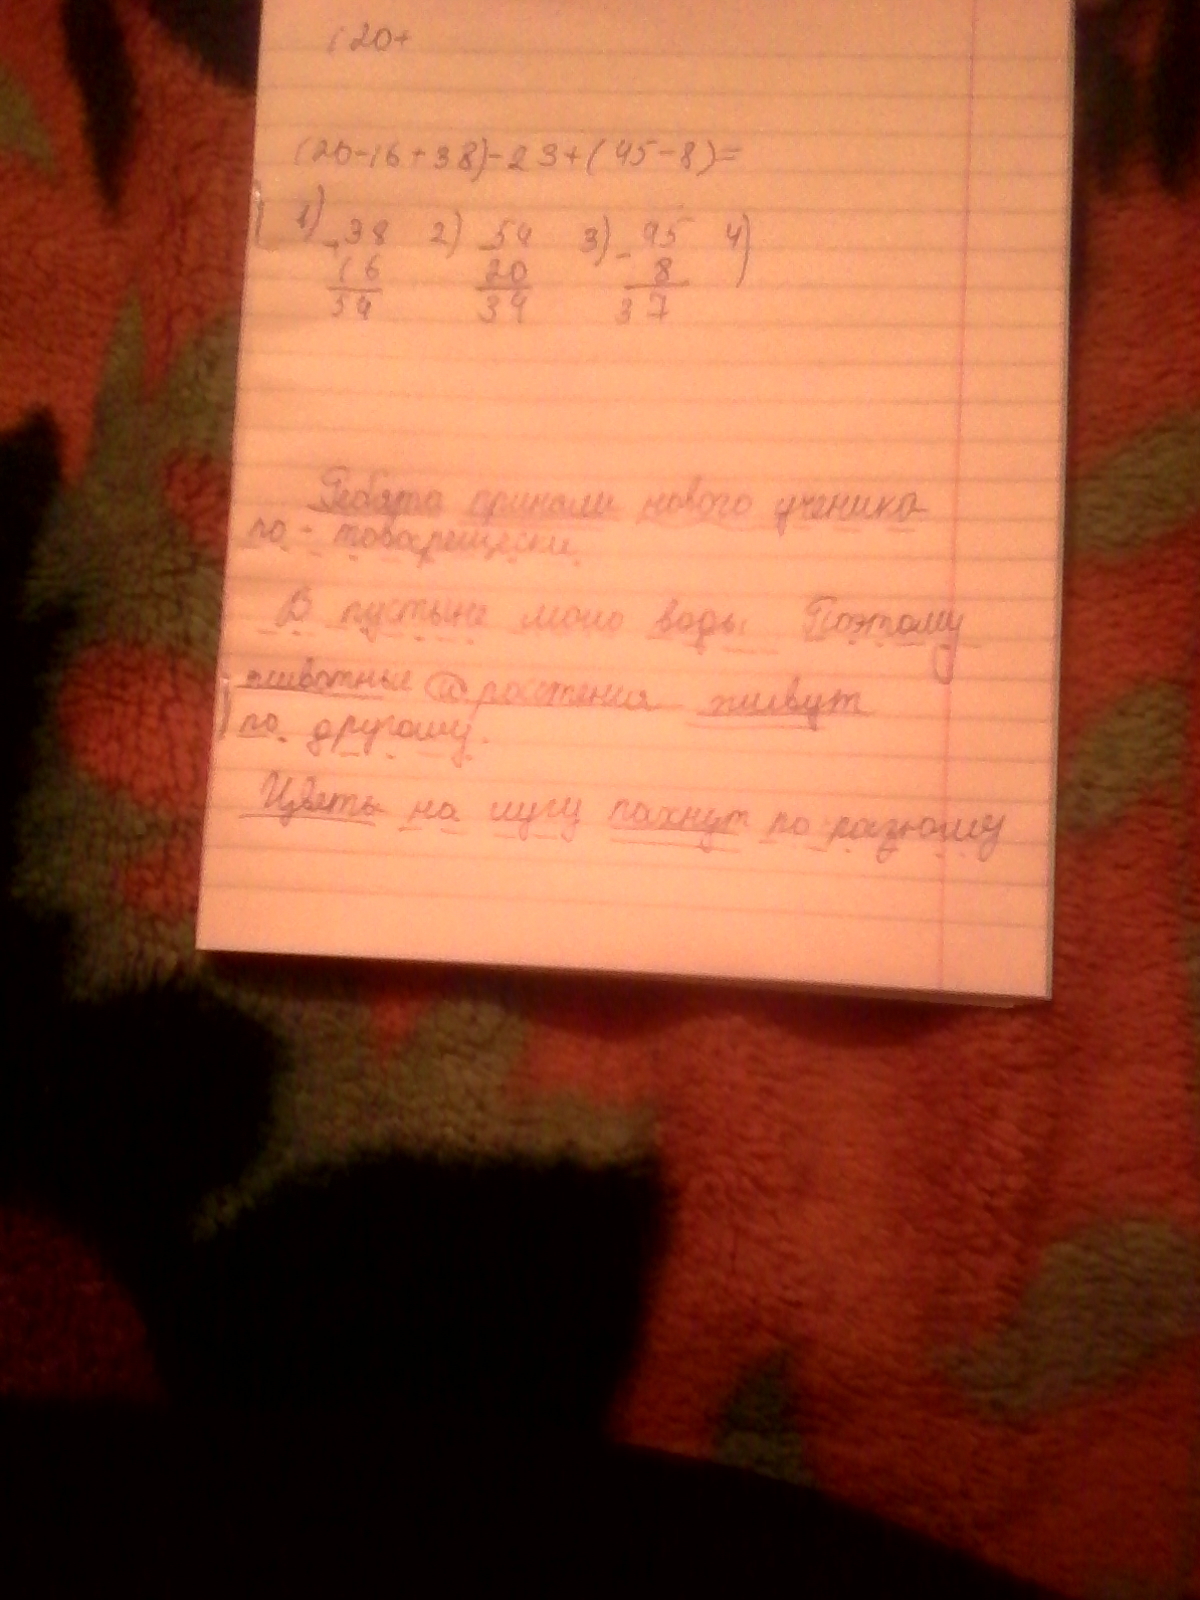 (20+
(20-16+38)-23+(45-8)=
1) 38 2) 54 3) - 45 4)
16 20 8
54 34 37
Ребята приняли нового ученика
по - товарищески.
В пустыне мало воды. Поэтому
животные и растения живут
по другому.
Цветы на лугу пахнут по разному